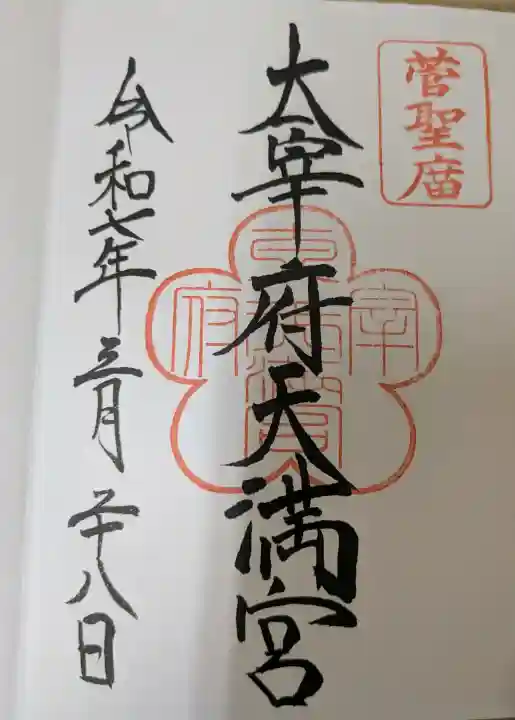 菅聖廟
太宰府天満宮
令和七年三月二十八日